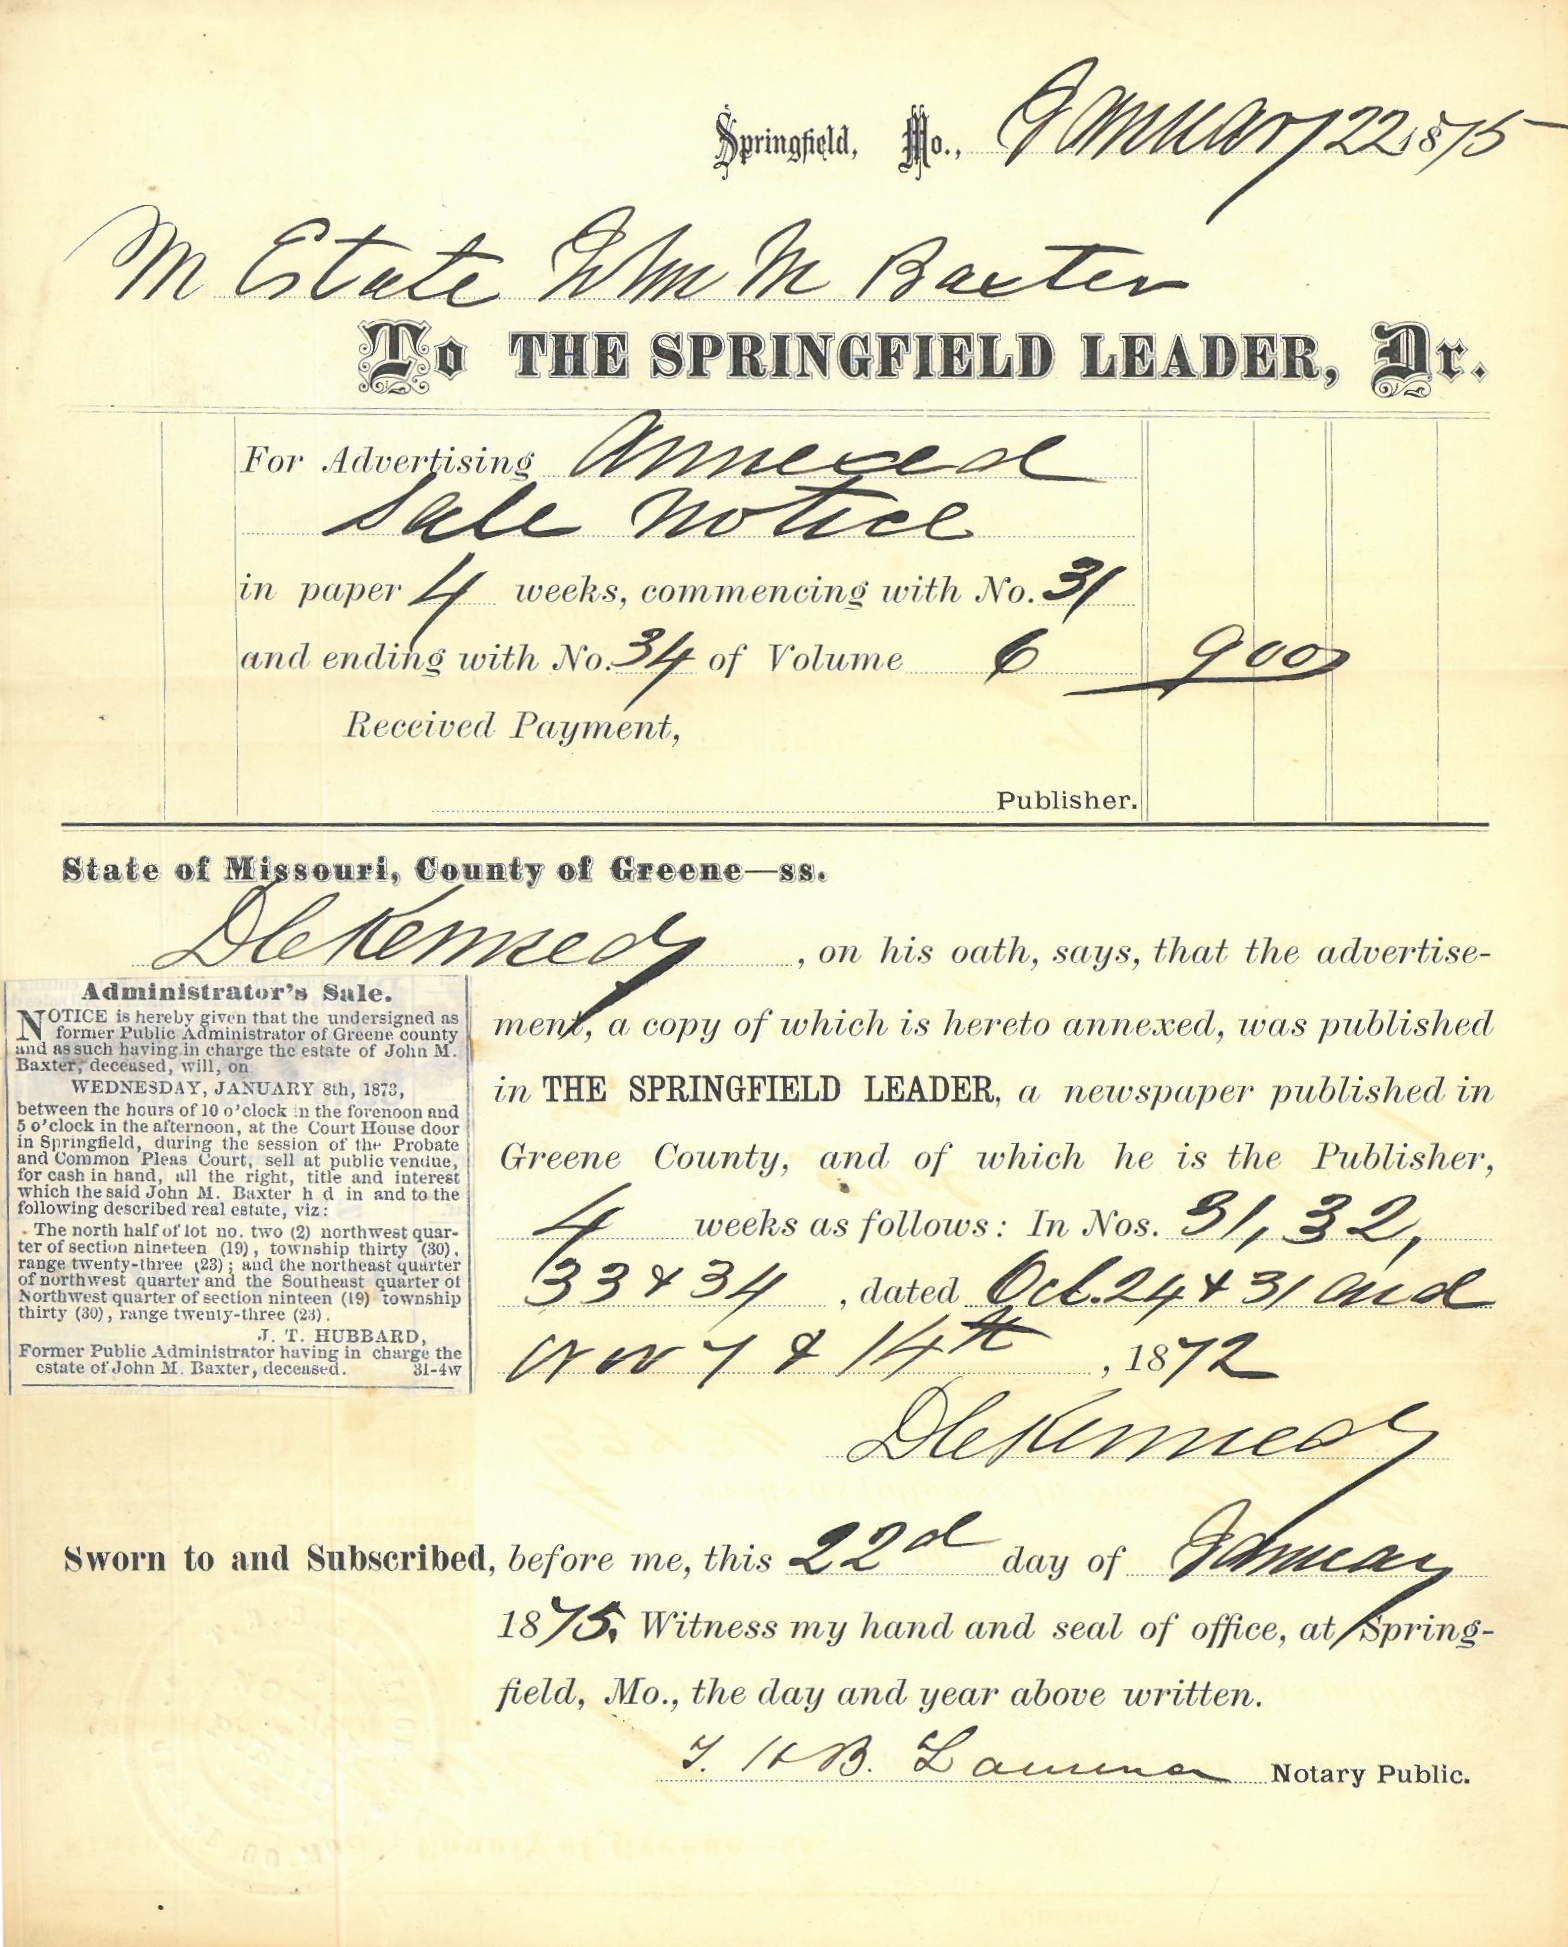 Springfield, Mo., January 22 1875
M Estate John M Baxter
To THE SPRINGFIELD LEADER, Dr.
For Advertising Annexed
Sale Notice
in paper 4 weeks, commencing with No. 31
and ending with No. 34 of Volume 6 9 00
Received Payment,
Publisher.
State of Missouri, County of Greene—ss.
D C Kennedy, on his oath, says, that the advertise-
ment, a copy of which is hereto annexed, was published
in THE SPRINGFIELD LEADER, a newspaper published in
Greene County, and of which he is the Publisher,
4 weeks as follows: In Nos. 31, 32,
33 & 34, dated Oct. 24 & 31 and
Nov 7 & 14th, 1872
D C Kennedy
Administrator's Sale.
NOTICE is hereby given that the undersigned as
former Public Administrator of Greene county
and as such having in charge the estate of John M.
Baxter, deceased, will, on
WEDNESDAY, JANUARY 8th, 1873,
between the hours of 10 o'clock in the forenoon and
5 o'clock in the afternoon, at the Court House door
in Springfield, during the session of the Probate
and Common Pleas Court, sell at public vendue,
for cash in hand, all the right, title and interest
which the said John M. Baxter h d in and to the
following described real estate, viz:
The north half of lot no. two (2) northwest quar-
ter of section nineteen (19), township thirty (30),
range twenty-three (23); and the northeast quarter
of northwest quarter and the Southeast quarter of
Northwest quarter of section ninteen (19) township
thirty (30), range twenty-three (23).
J. T. HUBBARD,
Former Public Administrator having in charge the
estate of John M. Baxter, deceased. 31-4w
Sworn to and Subscribed, before me, this 22d day of January
1875. Witness my hand and seal of office, at Spring-
field, Mo., the day and year above written.
B. Notary Public.